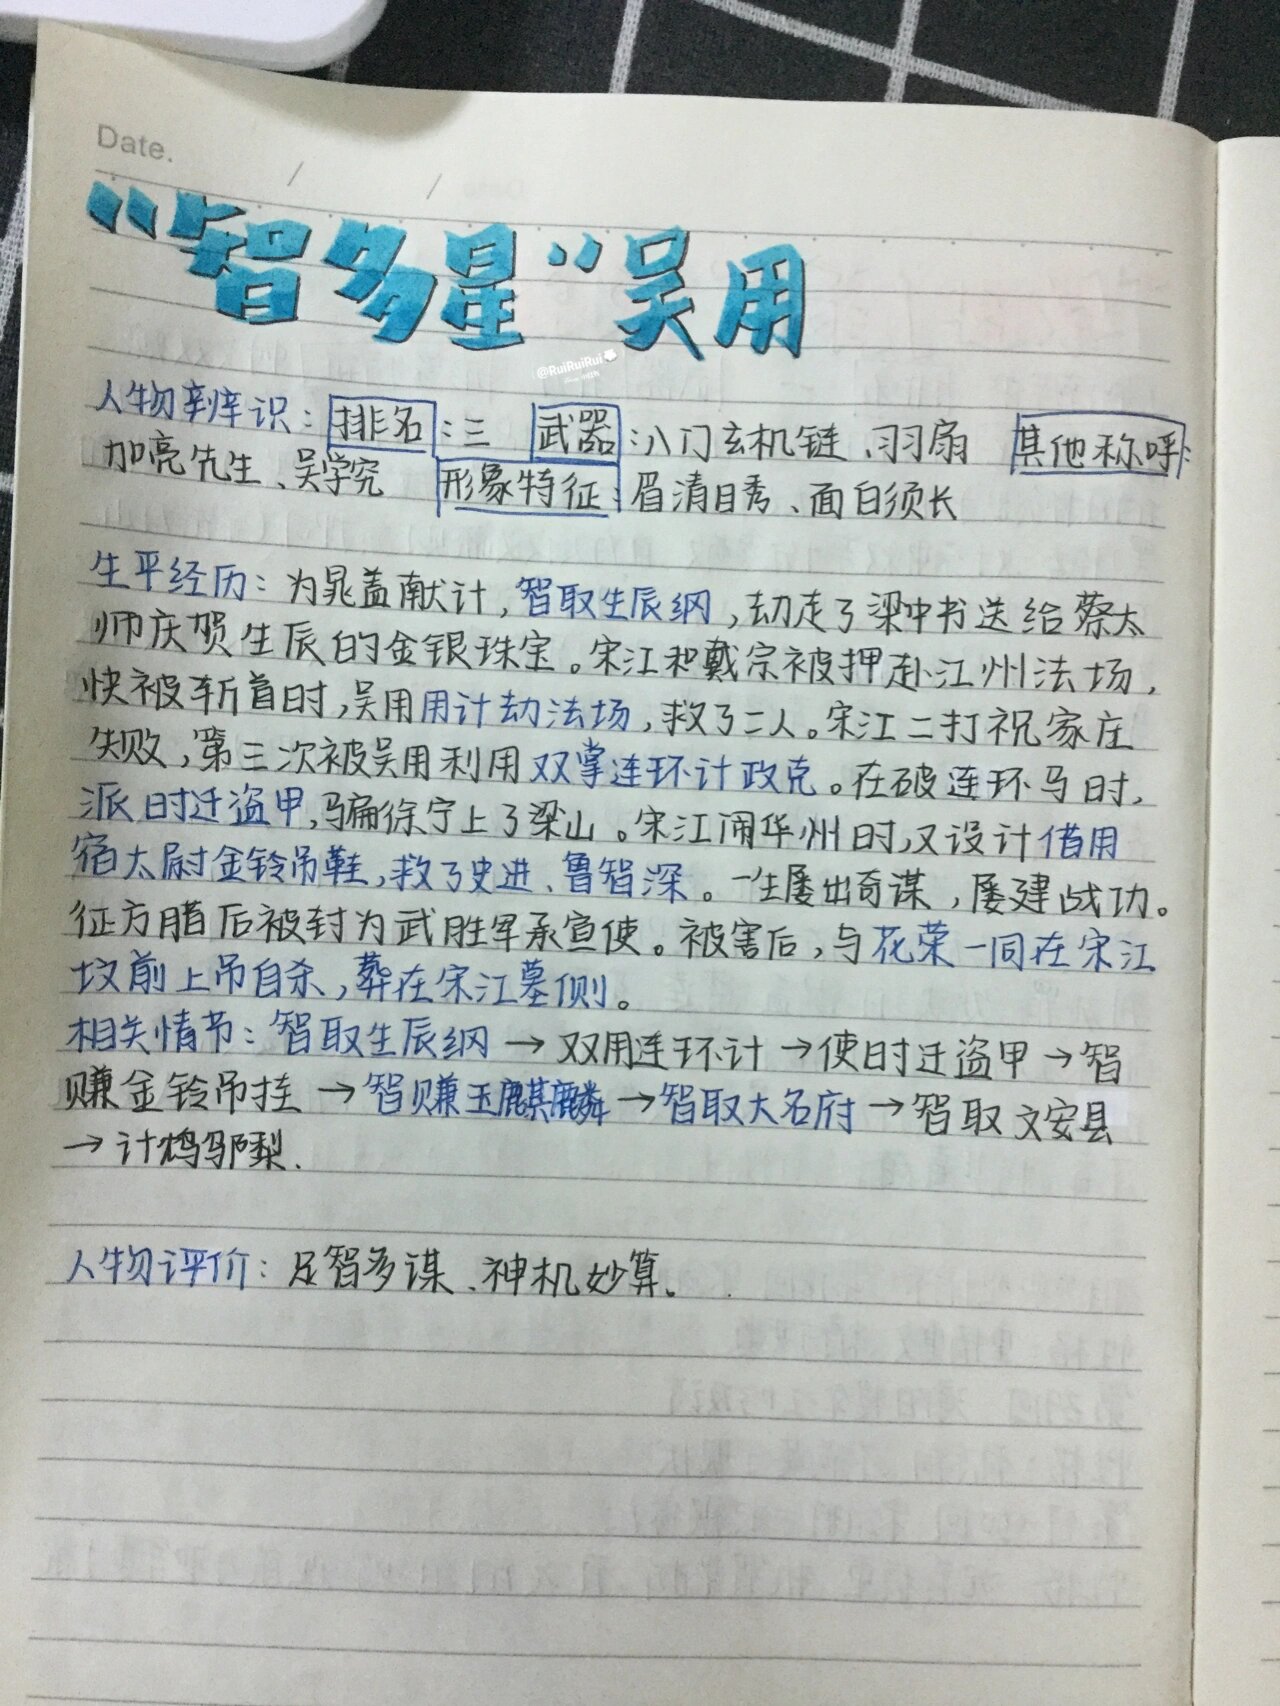 Date.      /      /
“智多星”吴用
@RuiRuiRui
人物辨识：排名：三 武器：八门玄机链、羽扇 其他称呼：
加亮先生、吴学究 形象特征：眉清目秀、面白须长
生平经历：为晁盖献计，智取生辰纲，劫走了梁中书送给蔡太
师庆贺生辰的金银珠宝。宋江和戴宗被押赴江州法场，
快被斩首时，吴用用计劫法场，救了二人。宋江二打祝家庄
失败，第三次被吴用利用双掌连环计政克。在破连环马时，
派时迁盗甲，骗徐宁上了梁山。宋江闹华州时，又设计借用
宿太尉金铃吊鞋，救了史进、鲁智深。一生屡出奇谋，屡建战功。
征方腊后被封为武胜军承宣使。被害后，与花荣一同在宋江
坟前上吊自杀，葬在宋江墓侧。
相关情节：智取生辰纲→双用连环计→使时迁盗甲→智
赚金铃吊挂→智赚玉麒麟→智取大名府→智取文安县
→计鸩邬梨.
人物评价：足智多谋、神机妙算。